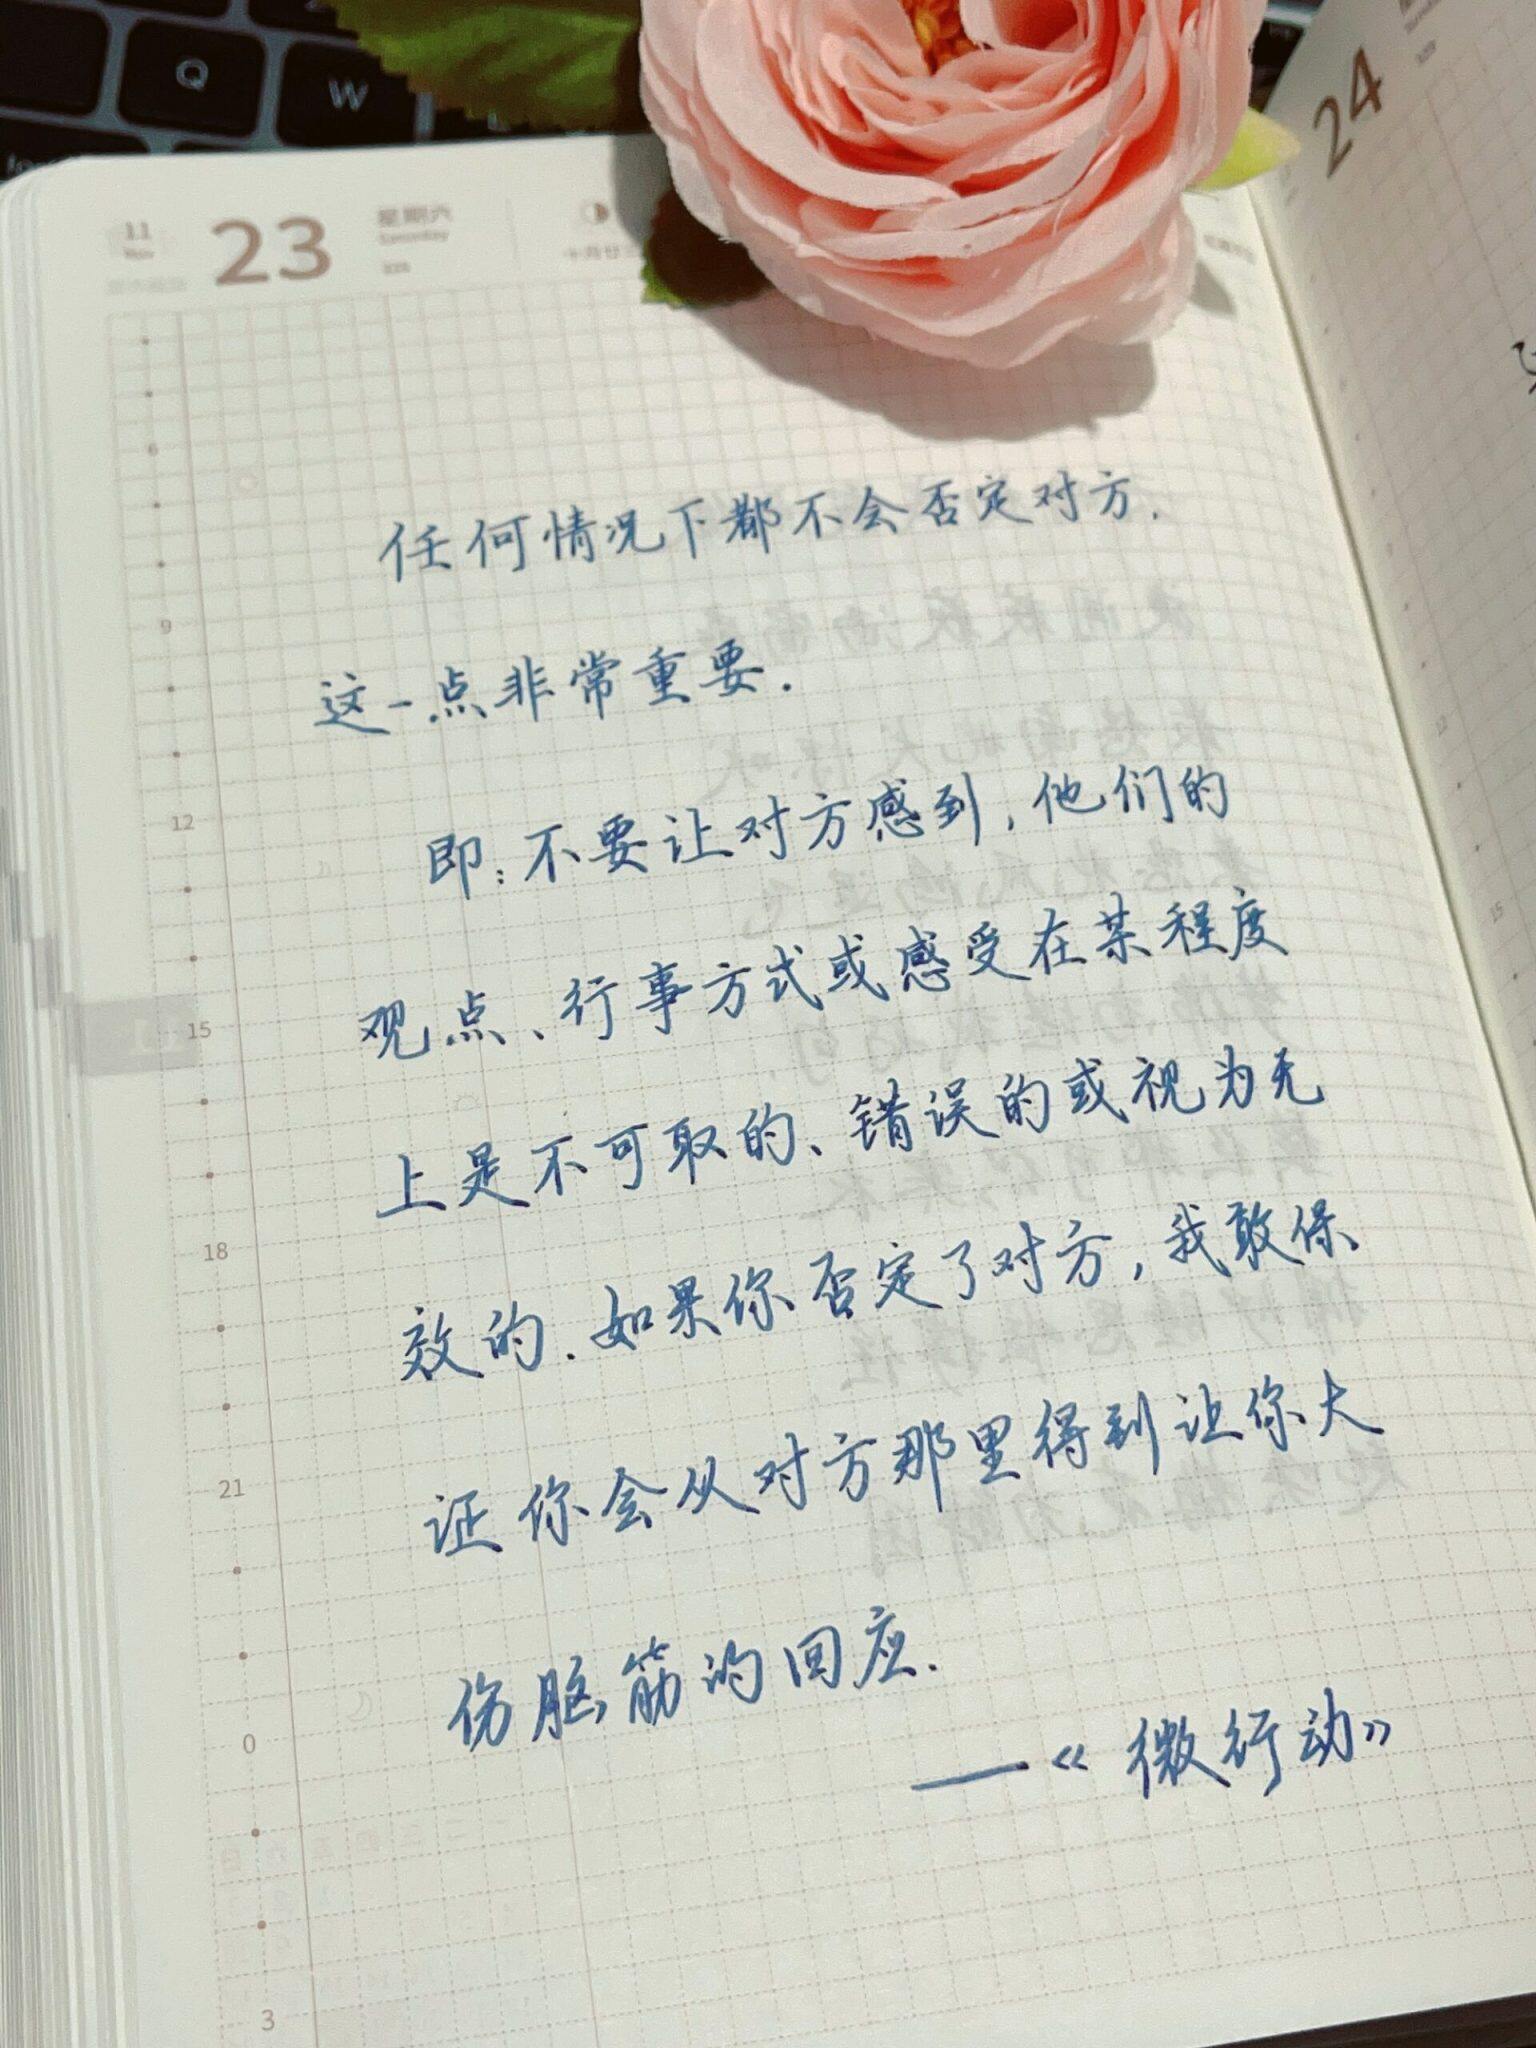 Q
W
11
Nov
23
星期六
Saturday
24
任何情况下都不会否定对方.
这一点非常重要.
即:不要让对方感到,他们的
观点、行事方式或感受在某程度
上是不可取的、错误的或视为无
效的.如果你否定了对方,我敢保
证你会从对方那里得到让你大
伤脑筋的回应.
——《微行动》
6
9
12
15
18
21
0
3
12
15